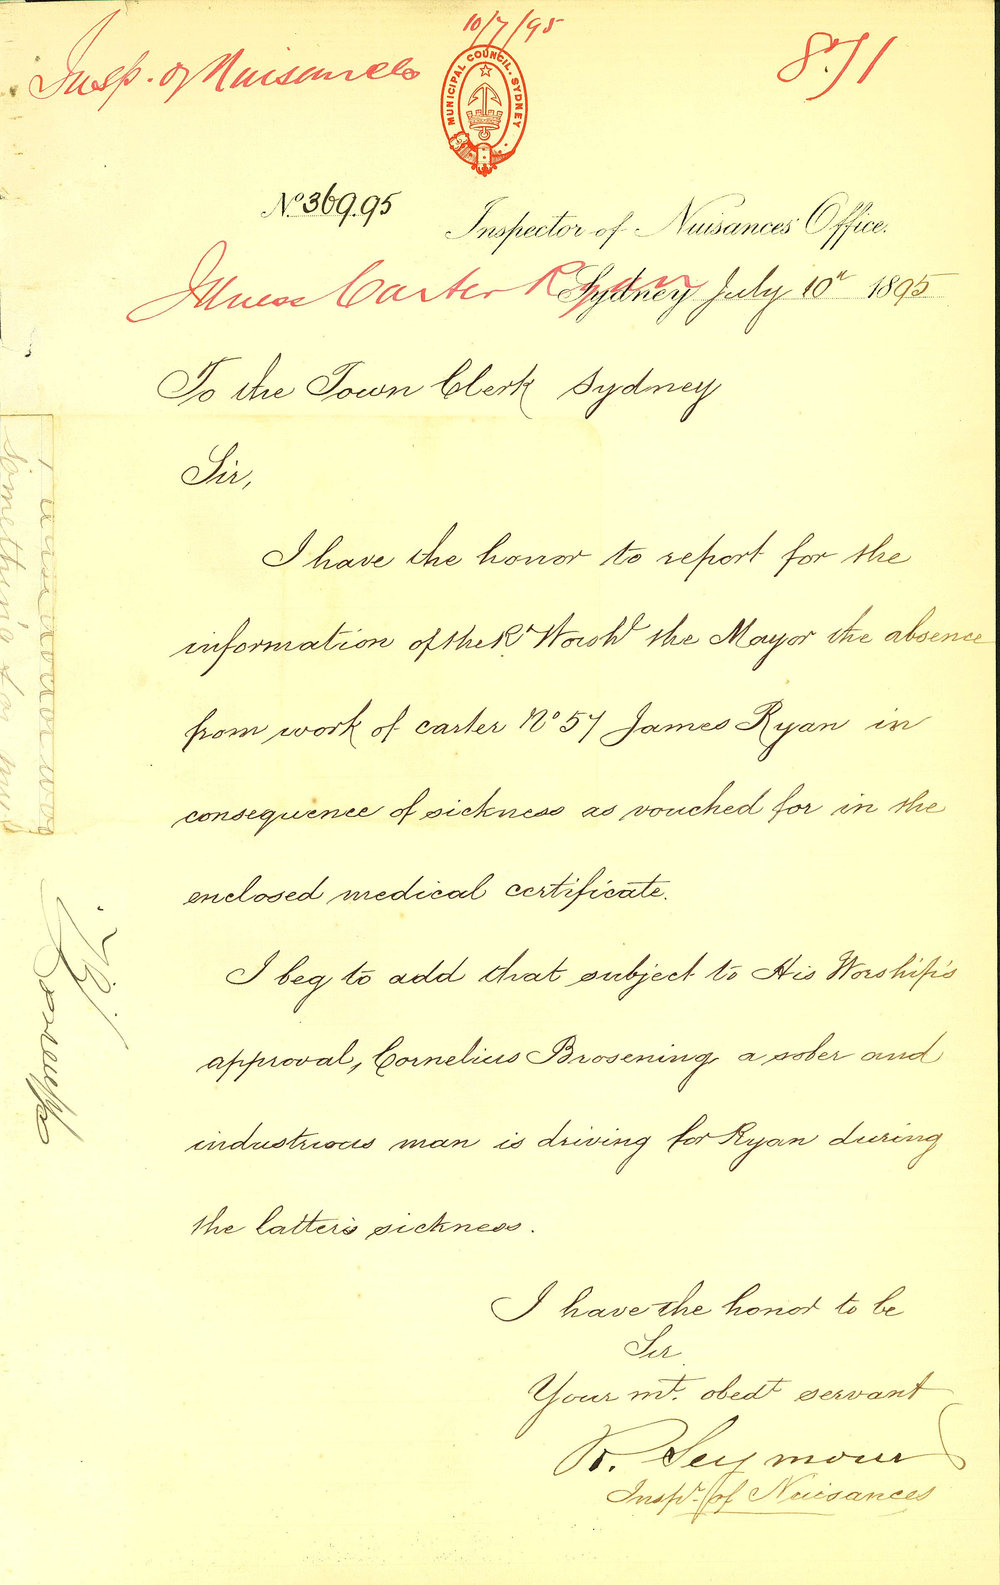 10/7/95
Insp. of Nuisances
871
MUNICIPAL COUNCIL. SYDNEY
No 369.95
Inspector of Nuisances' Office.
Illness Carter Ryan
Sydney July 10th 1895
To the Town Clerk Sydney
Sir,
I have the honor to report for the
information of the Rt Worshl the Mayor the absence
from work of carter No 57 James Ryan in
consequence of sickness as vouched for in the
enclosed medical certificate.
I beg to add that subject to His Worship's
approval, Cornelius Brosening a sober and
industrious man is driving for Ryan during
the latter's sickness.
I have the honor to be
Sir
Your mt. obedt servant
R. Seymour
Inspr. of Nuisances
Approved
something for